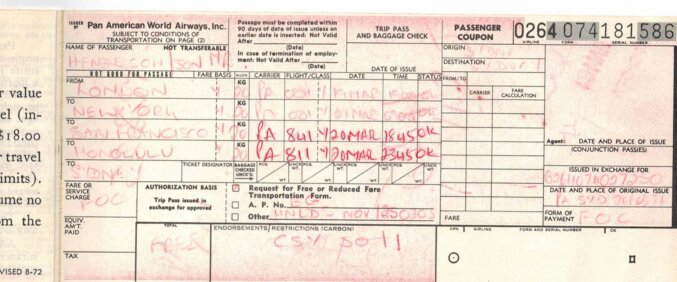 r value
el (in-
$18.00
r travel
imits).
ume no
om the
VISED 8-72
ISSUED BY Pan American World Airways, Inc.
SUBJECT TO CONDITIONS OF
TRANSPORTATION ON PAGE (2)
Passage must be completed within
90 days of date of issue unless an
earlier date is inserted: Not Valid
After
(Date)
In case of termination of employ-
ment: Not Valid After
(Date)
TRIP PASS
AND BAGGAGE CHECK
DATE OF ISSUE
PASSENGER
COUPON
0264 074181586
AIRLINE FORM SERIAL NUMBER
NAME OF PASSENGER NOT TRANSFERABLE
ORIGIN
DESTINATION
SYDNEY
NOT GOOD FOR PASSAGE FARE BASIS ALLOW CARRIER FLIGHT/CLASS DATE TIME STATUS
FROM/TO CARRIER FARE CALCULATION
FROM LONDON Y KG PA
TO NEW YORK Y KG PA
TO SAN FRANCISCO Y KG PA 841 Y 20MAR 1845 OK
TO HONOLULU Y KG PA 811 Y 20MAR 2345 OK
TO SYDNEY
TICKET DESIGNATOR BAGGAGE CHECKED UNCK'D. PCS. WT. UNCK WT.
Agent: DATE AND PLACE OF ISSUE
(CONJUNCTION PASS(ES)
ISSUED IN EXCHANGE FOR
DATE AND PLACE OF ORIGINAL ISSUE
FORM OF
PAYMENT FOC
FARE OR
SERVICE
CHARGE FOC
AUTHORIZATION BASIS
Trip Pass issued in
exchange for approved
Request for Free or Reduced Fare
Transportation Form.
A. P. No.
Other
FARE
EQUIV.
AM'T.
PAID
TOTAL
AREA
ENDORSEMENTS/RESTRICTIONS (CARBON)
CPN AIRLINE FORM AND SERIAL NUMBER CK